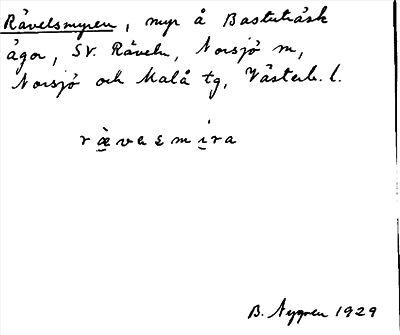 Rävelsmyren, myr å Bastuträsk
ägor, SV. Räveln, Norsjö sn,
Norsjö och Malå tg, Västerb. l.
rævasmira
B. Nygren 1929